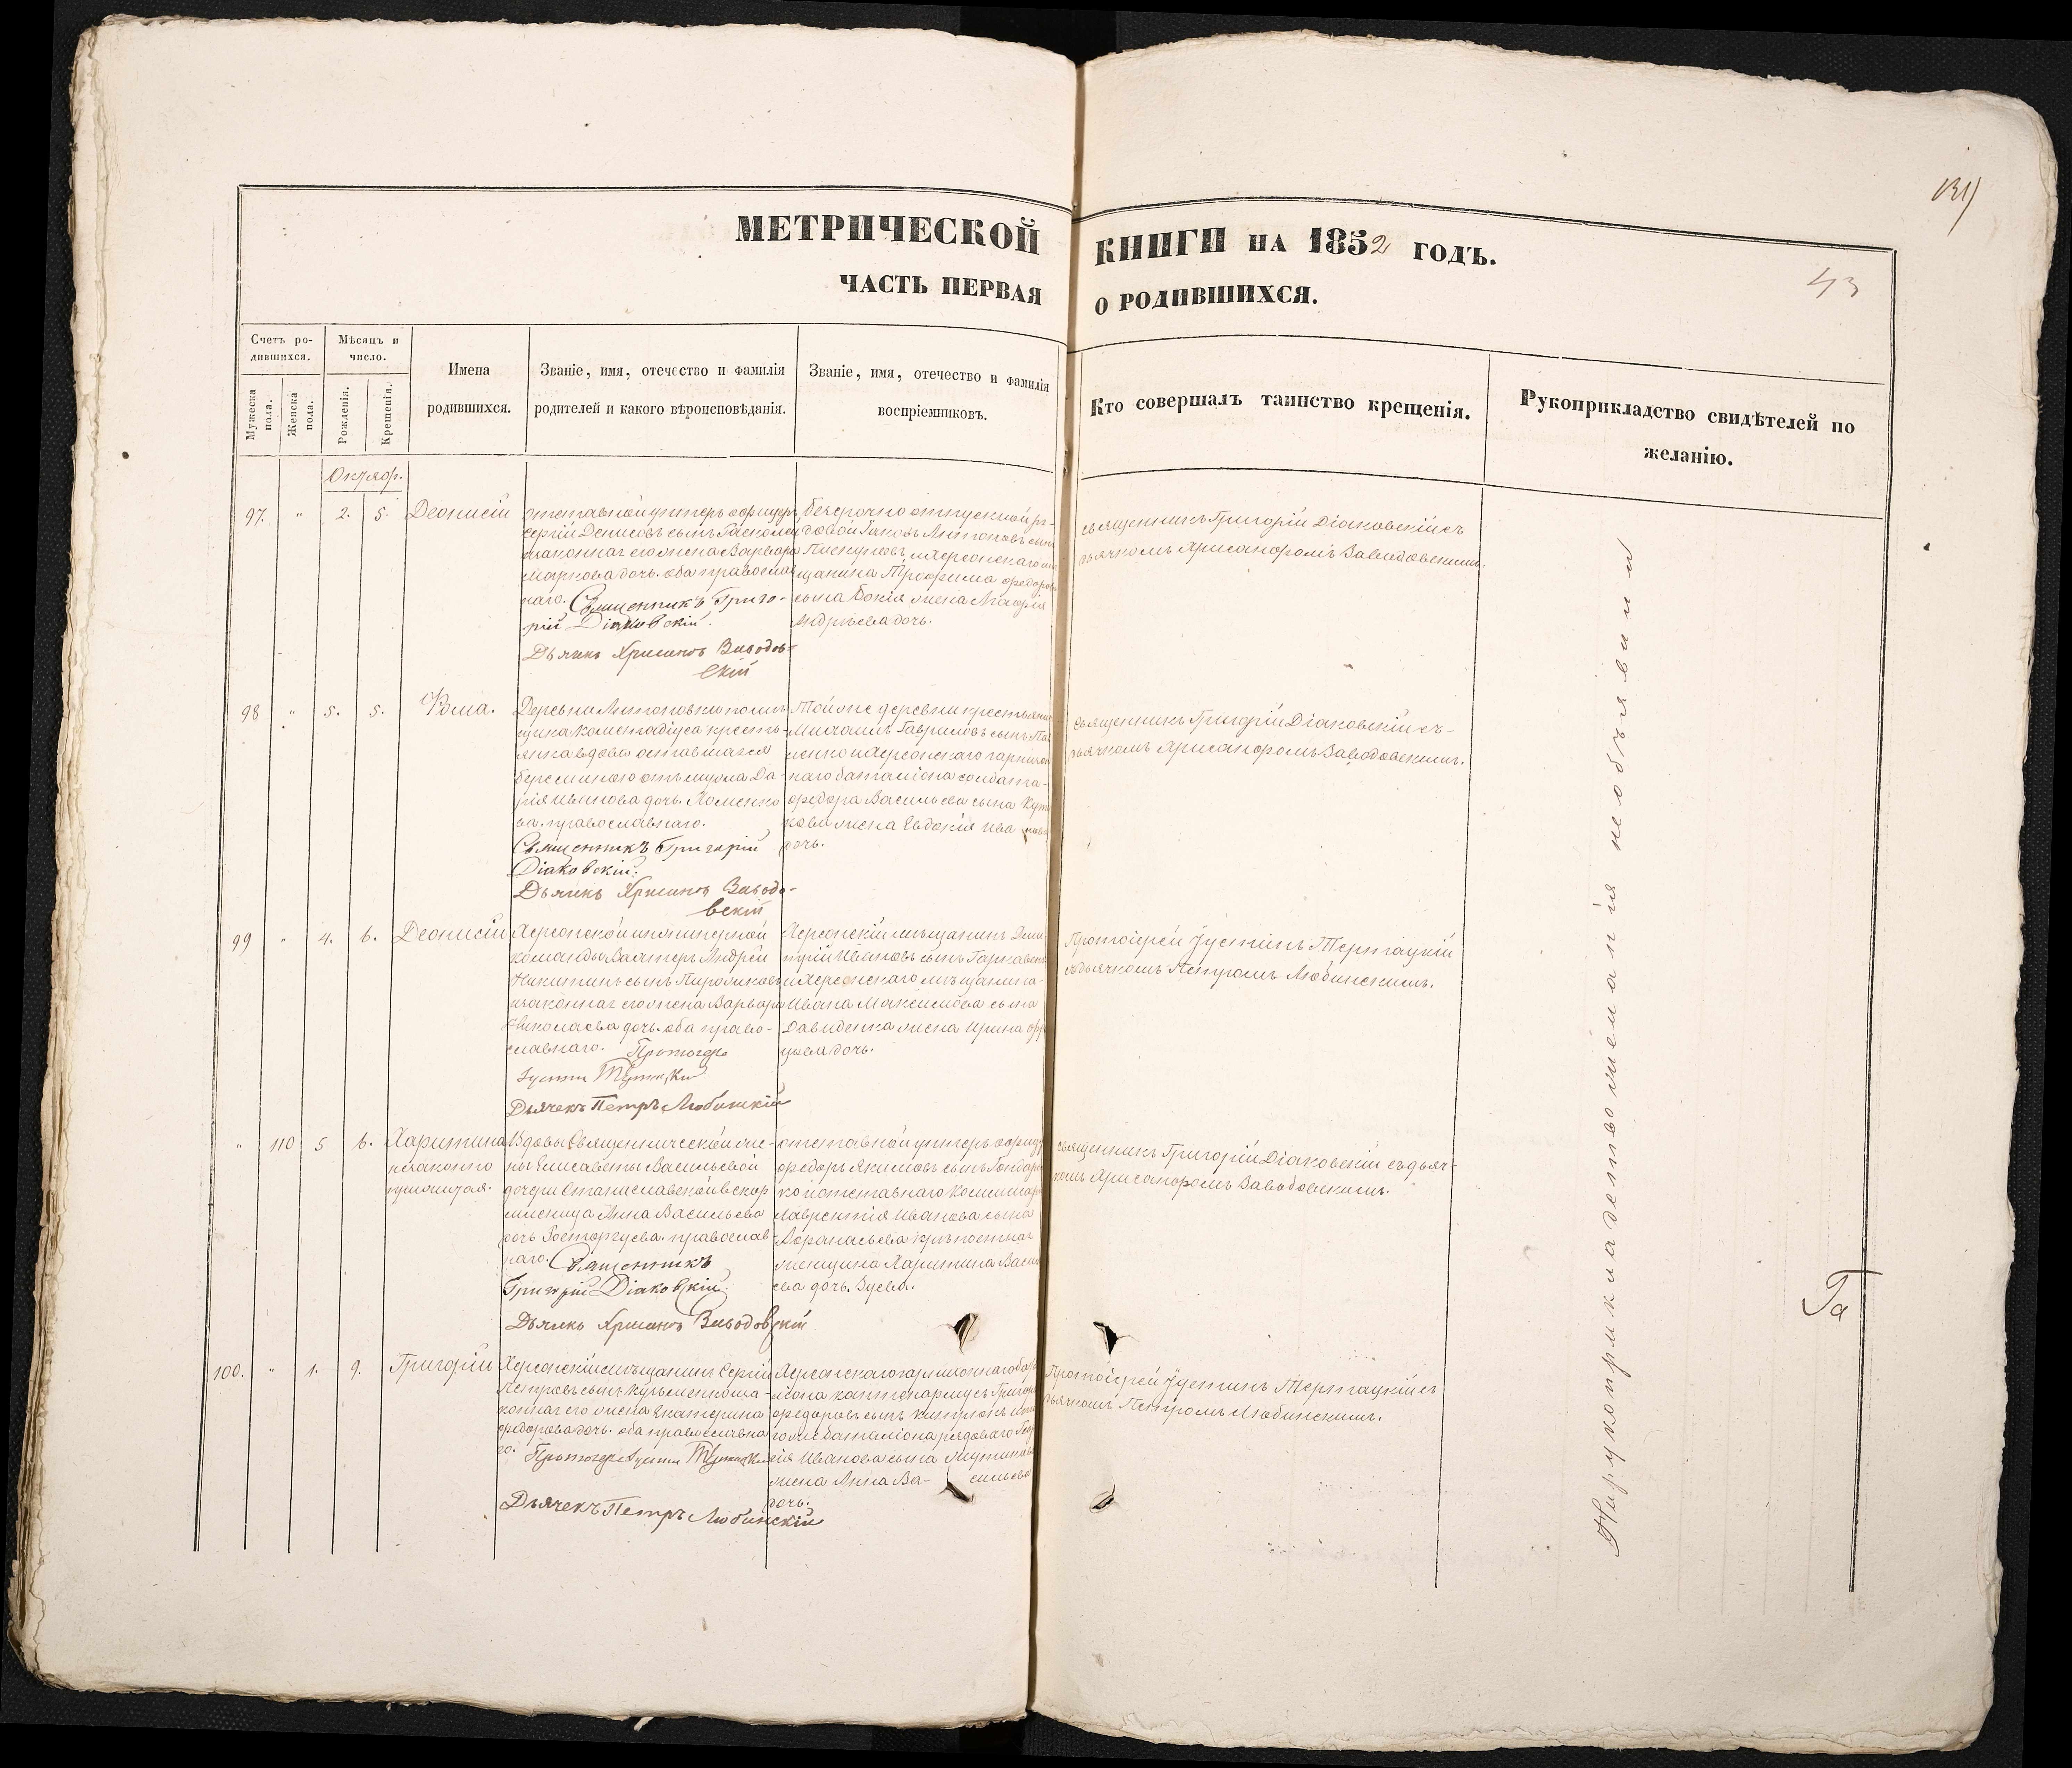 134
МЕТРИЧЕСКОЙ КНИГИ НА 1852 ГОДЪ.
43
ЧАСТЬ ПЕРВАЯ О РОДИВШИХСЯ.
Счетъ ро-
дившихся.
Мужеска пола.
Женска пола.
Мѣсяцъ и
число.
Рожденія.
Крещенія.
Имена
родившихся.
Званіе, имя, отечество и фамилія
родителей и какого вѣроисповѣданія.
Званіе, имя, отечество и фамилія
воспріемниковъ.
Кто совершалъ таинство крещенія.
Рукоприкладство свидѣтелей по
желанію.
Октяб.
97. " 2. 5. Деонисій
отставной унтеръ офицеръ
Сергій Денисовъ сынъ
законная его жена Варвара
Маркова дочь. оба православ
наго. Священникъ Григо-
рій Діаковскій.
Дьячекъ Хрисанѳъ Заводов-
скій
безсрочно отпускной ря-
довой Іаковъ Антоновъ сынъ
и Херсонскаго мѣ
щанина Трофима Федоров
сына жена Агафія
Андрѣева дочь.
священникъ Григорій Діаковскій съ
дьячкомъ Хрисанфомъ Заводовскимъ.
98 " 5. 5. Ѳома.
Деревни Антоновки помѣ
щика крестъ-
янка вдова оставшаяся
беременною отъ мужа Да-
рія Иванова дочь. Хоменко
ва. православнаго.
Священникъ Григорій
Діаковскій.
Дьячекъ Хрисанѳъ Заводо-
вскій
Той же деревни крестьянинъ
Михаилъ Гавриловъ сынъ
ленко и Херсонскаго гарнизон
наго баталіона солдата
Федора Васильева сына
кова жена Евдокія Ива нова
дочь.
священникъ Григорій Діаковскій съ-
дьячкомъ Хрисанфомъ Заводовскимъ.
99 " 4. 6. Деонисій
Херсонской инженерной
команды Вахтеръ Андрей
Никитинъ сынъ Пирожковъ
законная его жена Варвара
Николаева дочь. оба право-
славнаго. Протоіерей
Іустинъ Терпацкій
Дьячекъ Петръ Любинскій
Херсонскій мѣщанинъ Дми
трій Ивановъ сынъ
и Херсонскаго мѣщанина
Ивана Максимова сына
Давиденка жена Ирина
дочь.
Протоіерей Іустинъ Терпацкій
съ дьячкомъ Петромъ Любинскимъ.
" 110 5 6. Харитина
незаконно
прижитая.
Вдовы Священнической же-
ны Елисаветы Васильевой
дочери Станиславской вскор
мленница Анна Васильева
дочь Расторгуева. православ-
наго. Священникъ
Григорій Діаковскій.
Дьячекъ Хрисанѳъ Заводовскій
отставной унтеръ офицеръ
Федоръ Якимовъ сынъ
ко и отставнаго
Лаврентія Иванова сына
Афанасьева крѣпостная
женщина Харитина Василь
ева дочь. Зуева.
священникъ Григорій Діаковскій съ дьяч-
комъ Хрисанфомъ Заводовскимъ.
100. " 1. 9. Григорій
Херсонскій мѣщанинъ Сергій
Петровъ сынъ Кузьменко за-
конная его жена Екатерина
Федорова дочь. оба православна
го. Протоіерей Іустинъ Терпацкій
Дьячекъ Петръ Любинскій
Херсонскаго гарнизоннаго бата
ліона каптенармусъ Григорій
Федоровъ сынъ
го же баталіона рядоваго
гія Иванова сына
жена Анна Ва- сильева
дочь.
Протоіерей Іустинъ Терпацкій съ
дьячкомъ Петромъ Любинскимъ.
На рукоприкладство желанія не объявили
Га